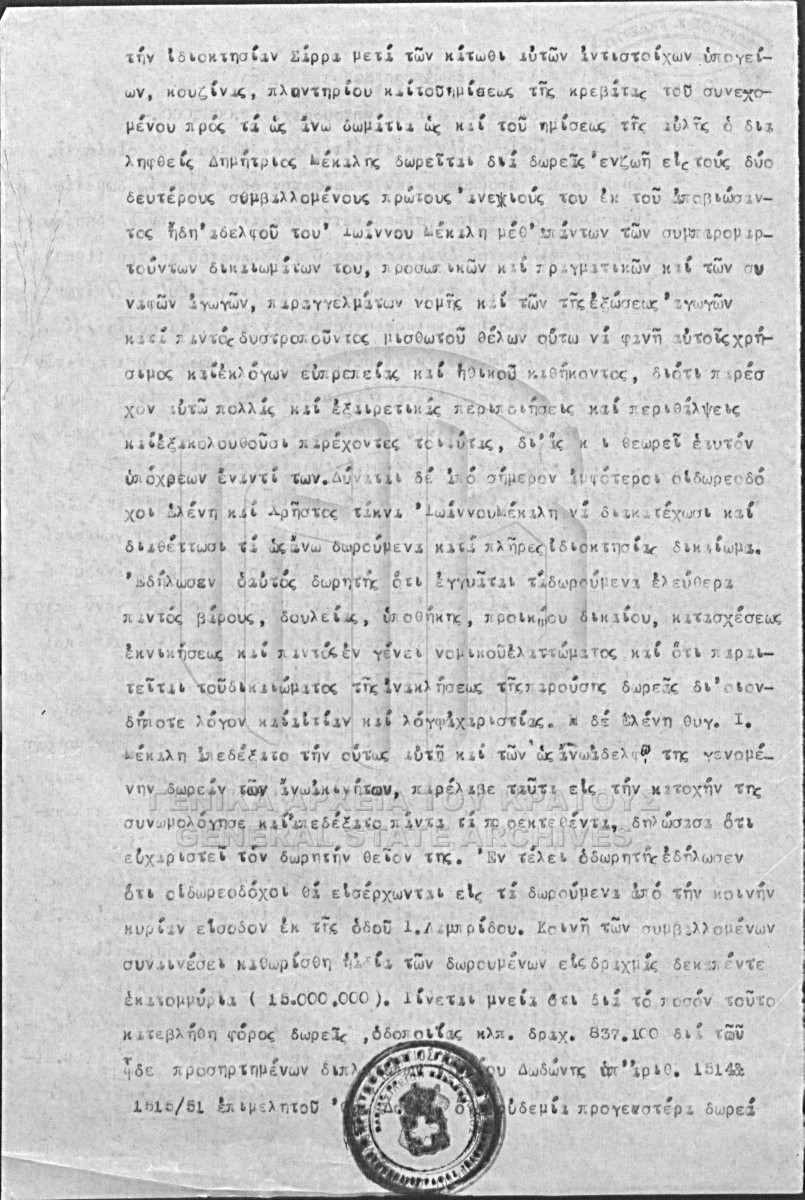 τήν ἰδιοκτησίαν Σάρρα μετά τῶν κάτωθι αὐτῶν ἀντιστοίχων ὑπογεί-
ων, κουζίνας, πλυντηρίου καίτοῦημίσεως τῆς κρεβάτας τοῦ συνεχο-
μένου πρός τά ὡς ἄνω δωμάτια ὡς καί τοῦ ημίσεως τῆς αὐλῆς ὁ δια
ληφθείς Δημήτριος Μέκαλης δωρεῖται διά δωρεᾶς 'ενζωῆ εἰς τούς δύο
δευτέρους συμβαλλομένους πρώτους 'ανεψιούς του ἐκ τοῦ ἀποβιώσαν-
τος ἤδη 'αδελφοῦ του 'Ιωάννου Μέκαλη μέθ' ἁπάντων τῶν συμπαρομαρ-
τούντων δικαιωμάτων του, προσωπικῶν καί πραγματικῶν καί τῶν συ
ναφῶν ἀγωγῶν, παραγγελμάτων νομῆς καί τῶν τῆς ἐξώσεως 'αγωγῶν
κατά παντός δυστροποῦντος μισθωτοῦ θέλων οὕτω νά φανῆ αὐτοῖς χρή-
σιμος καίἐκλόγων εὐπρεπείας καί ἠθικοῦ καθήκοντος, διότι παρέσ
χον αὐτῶ πολλάς καί ἐξαιρετικάς περιποιήσεις καί περιθάλψεις
καίἐξακολουθοῦσι παρέχοντες τοιαύτας, δι'ἅς κ ι θεωρεῖ ἑαυτόν
ὑπόχρεων ἔναντί των. Δύναται δέ ἀπό σήμερον ἀμφότεροι οἱδωρεοδό
χοι Ελένη καί Χρῆστος τέκνα 'Ιωάννου Μέκαλη νά διακατέχωσι καί
διαθέττωσι τά ὡς ἄνω δωρούμενα κατά πλῆρες ἰδιοκτησίας δικαίωμα.
'Εδήλωσεν ὁαὐτός δωρητής ὅτι ἐγγυᾶται τάδωρούμενα ἐλεύθερα
παντός βάρους, δουλείας, ὑποθήκης, προικώου δικαίου, κατασχέσεως
ἐκνικήσεως καί παντός ἐν γένει νομικοῦἐλαττώματος καί ὅτι παραι-
τεῖται τοῦδικαιώματος τῆς ἀνακλήσεως τῆς παρούσης δωρεᾶς δι'οἱον-
δήποτε λόγον καίαἰτίαν καί λόγῳἀχαριστίας. Η δέ Ελένη θυγ. Ι.
Μέκαλη ἀπεδέξατο τήν οὕτως αὐτῆ καί τῶν ὡς ἄνωἀδελφῶ της γενομέ-
νην δωρεάν τῶν ἄνωἀκινήτων, παρέλαβε ταῦτα εἰς τήν κατοχήν της
συνωμολόγησε καίἀπεδέξατο πάντα τά προεκτεθέντα, δηλώσασα ὅτι
εὐχαριστεῖ τόν δωρητήν θεῖον της. 'Εν τέλει ὁδωρητής ἐδήλωσεν
ὅτι οἱδωρεοδόχοι θά εἰσέρχωνται εἰς τά δωρούμενα ἀπό τήν κοινήν
κυρίαν εἴσοδον ἐκ τῆς ὁδοῦ Ι.Λαμπρίδου. Κοινῆ τῶν συμβαλλομένων
συναινέσει καθωρίσθη ἡἀξία τῶν δωρουμένων εἰς δραχμάς δεκαπέντε
ἑκατομμύρια ( 15.000.000). Γίνεται μνεία ὅτι διά τό ποσόν τοῦτο
κατεβλήθη φόρος δωρεᾶς ,ὁδοποιίας κλπ. δραχ. 837.100 διά τῶῦ
ᾗδε προσηρτημένων διπλ ου Δωδώνης ὑπ'ἀριθ. 1514&
1515/51 ἐπιμελητοῦ οὐδεμία προγενστέρα δωρεά
ΓΕΝΙΚΑ ΑΡΧΕΙΑ ΤΟΥ ΚΡΑΤΟΥΣ
GENERAL STATE ARCHIVES